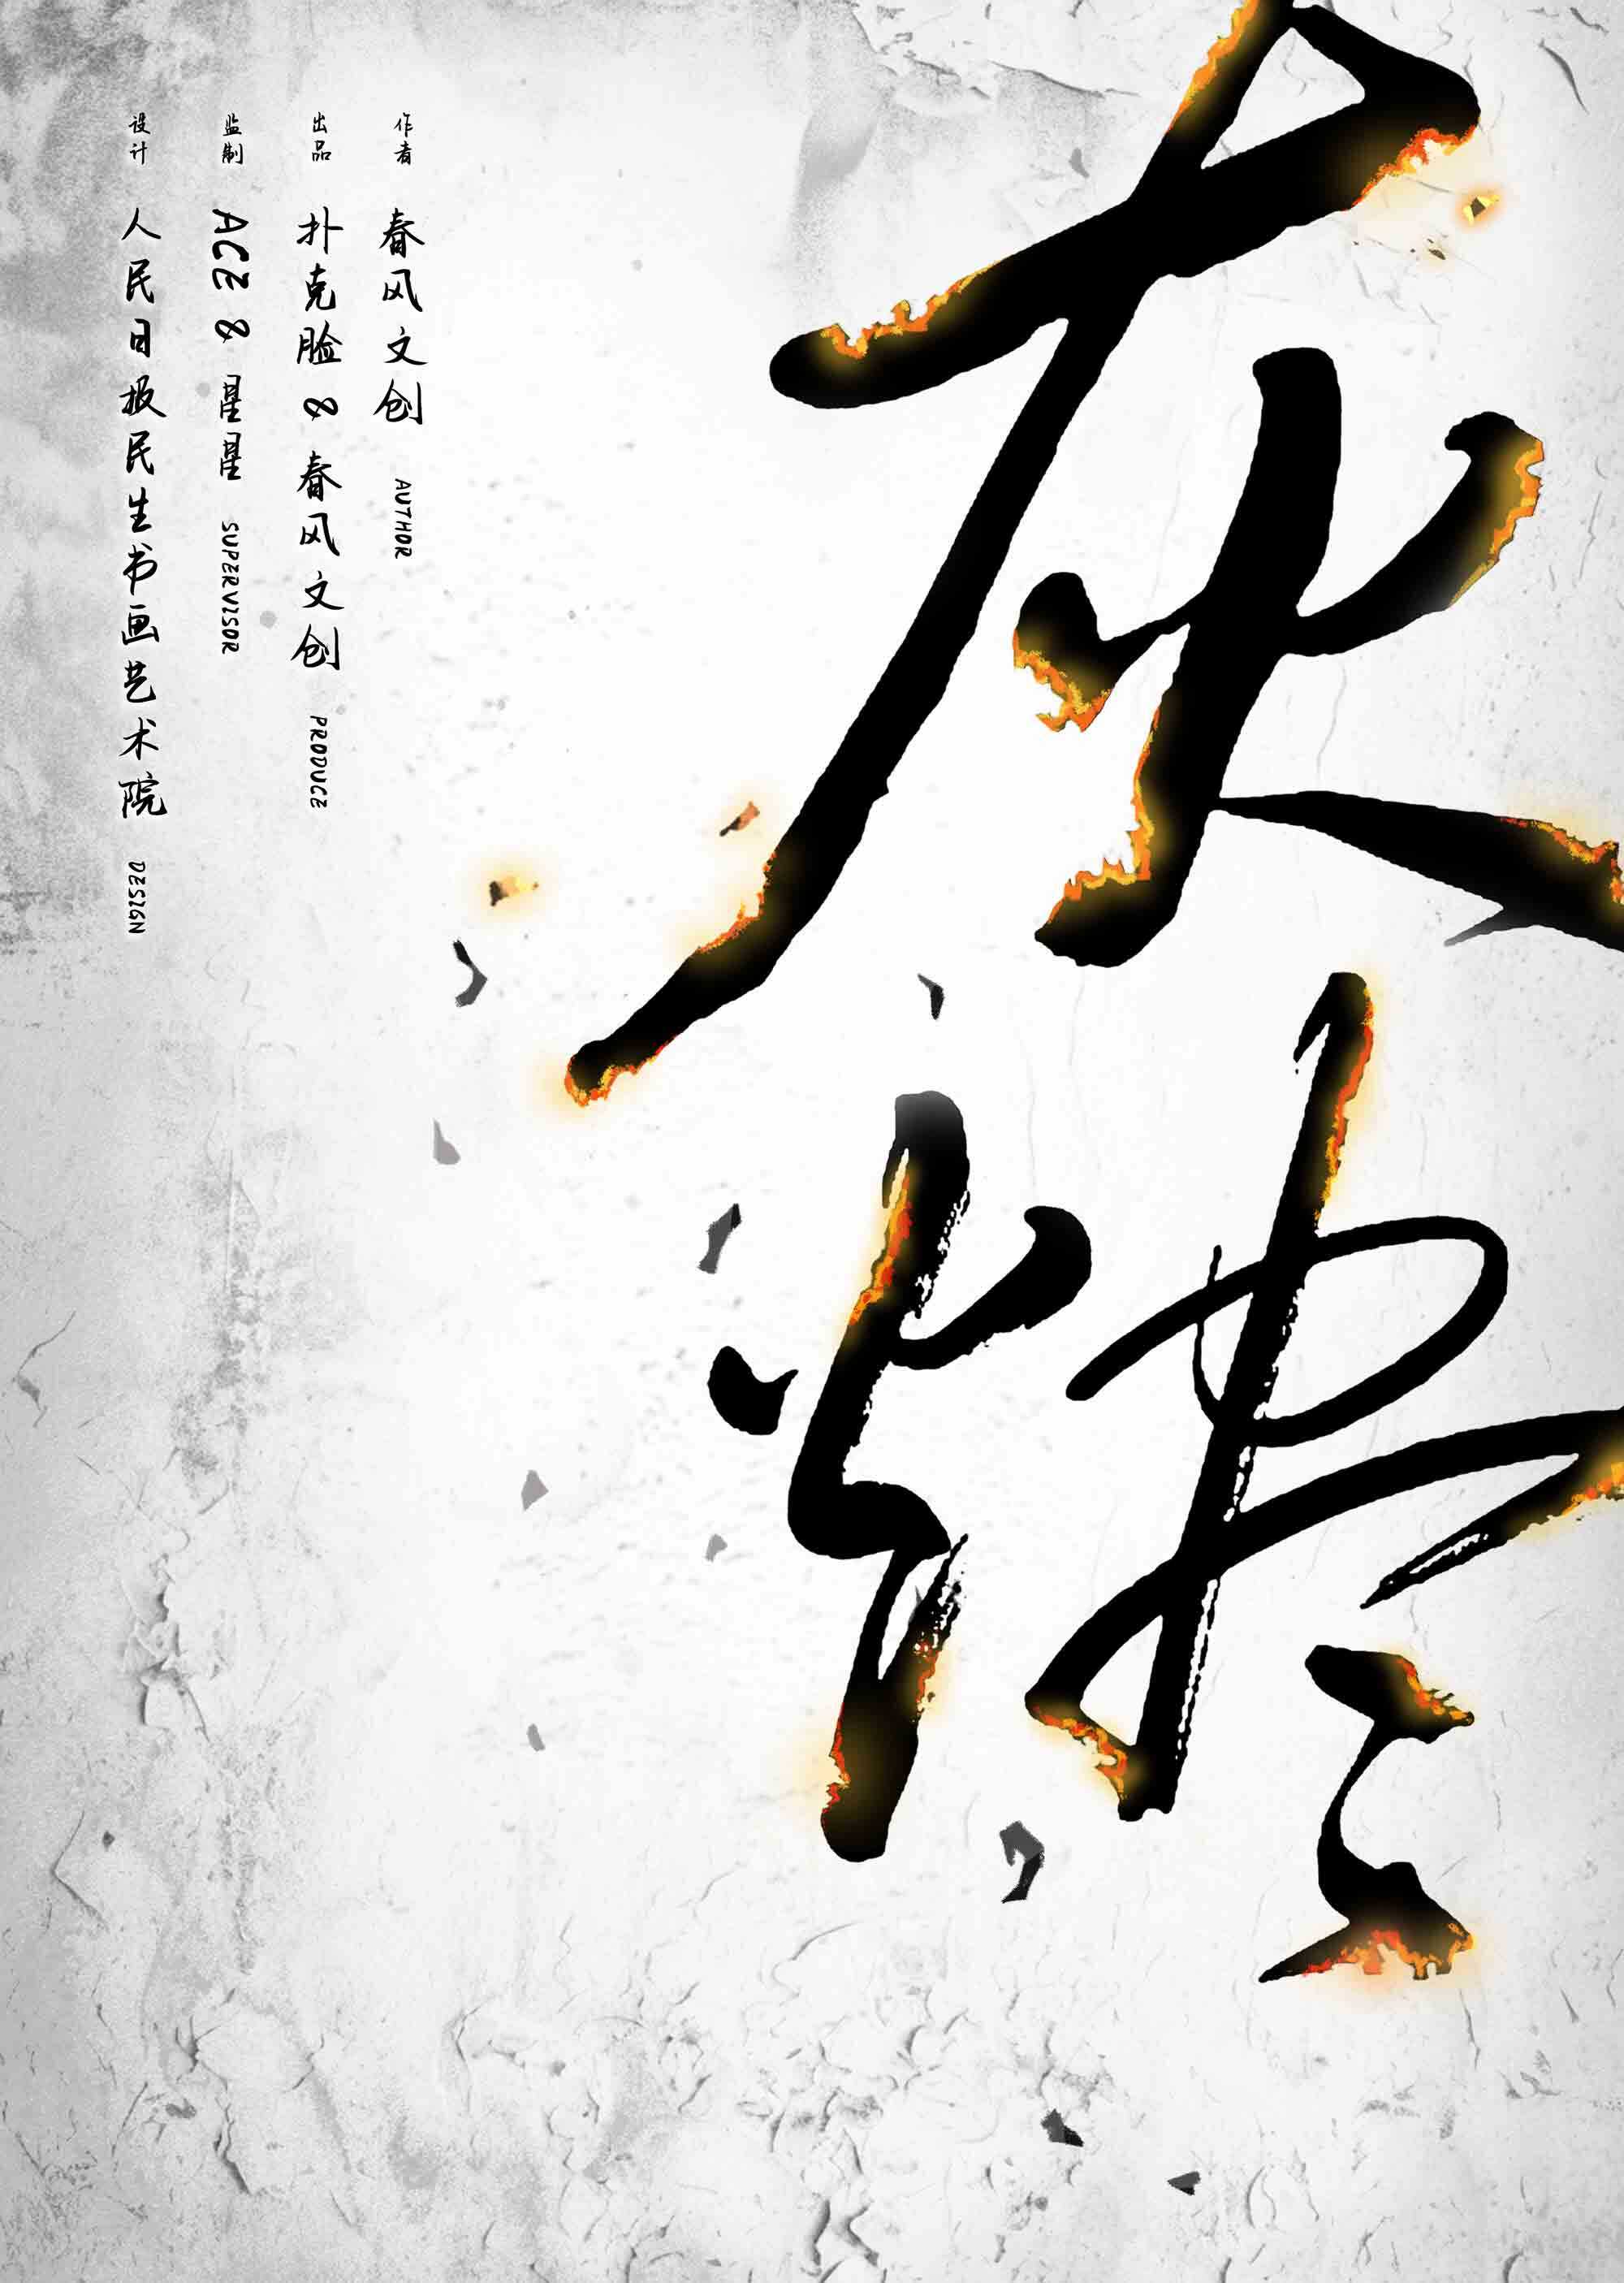 灰烬
作者 春风文创 AUTHOR
出品 扑克脸 & 春风文创 PRODUCE
监制 ACE & 星星 SUPERVISOR
设计 人民日报民生书画艺术院 DESIGN